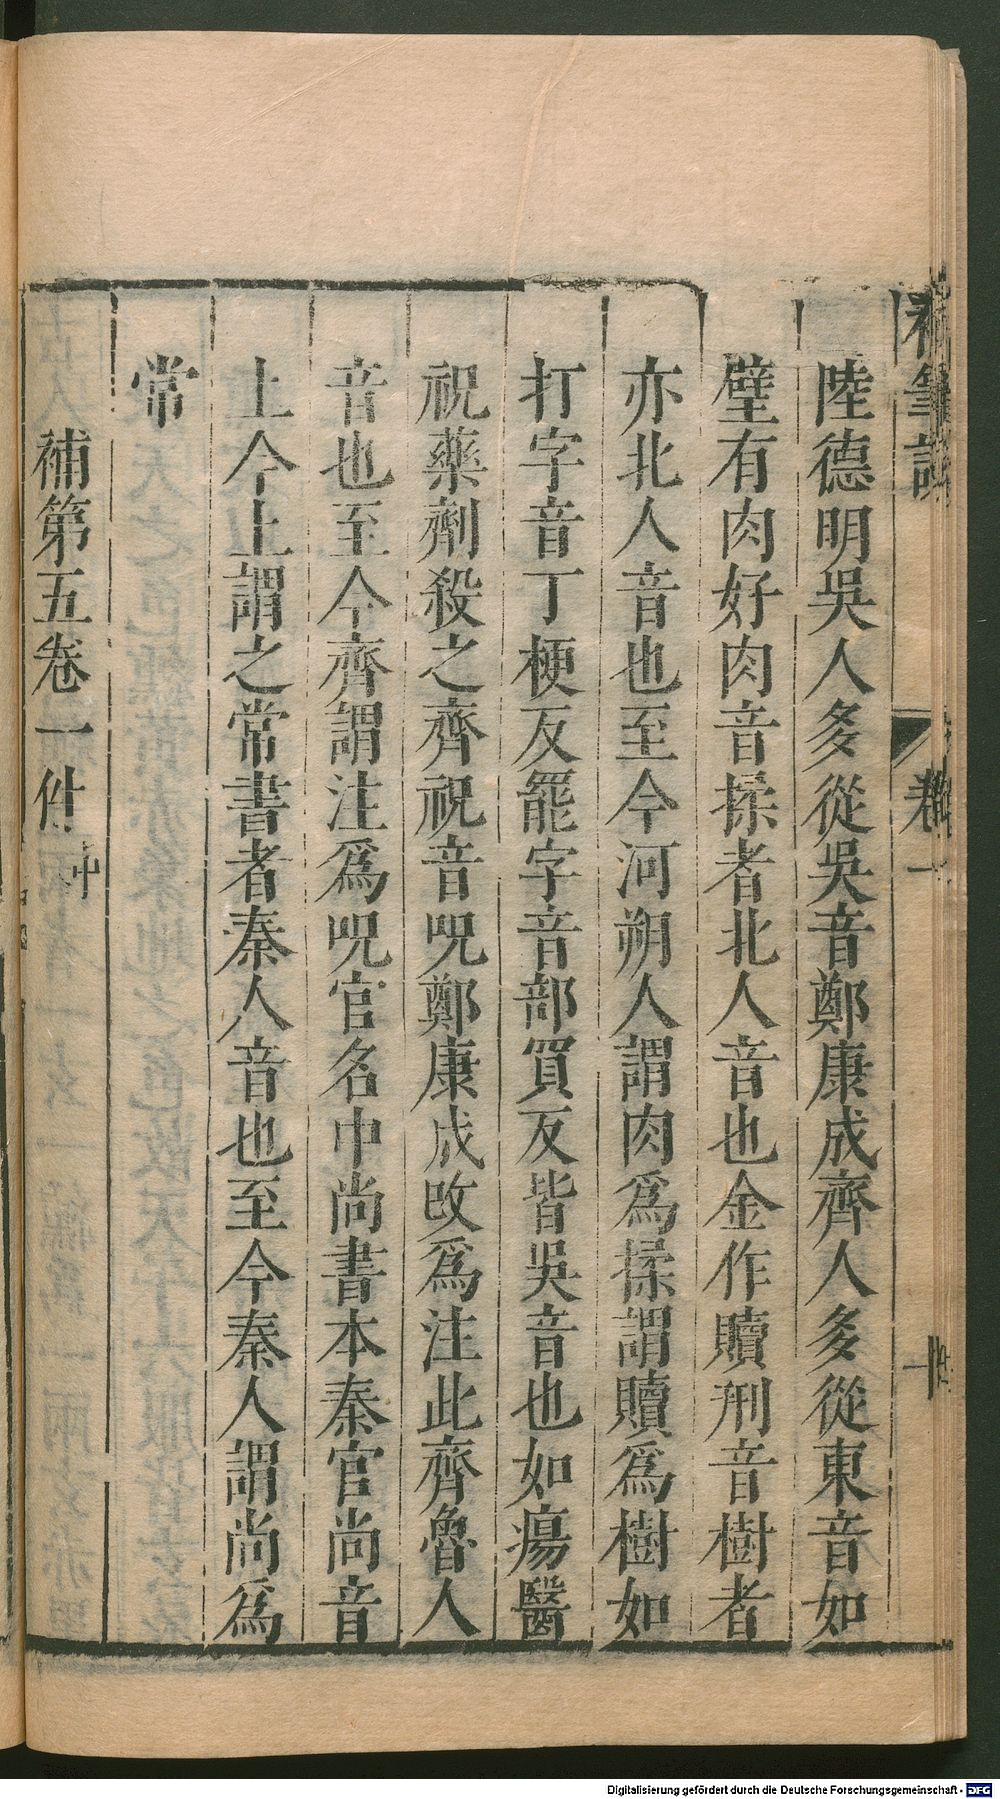 陸德明吳人多從吳音鄭康成齊人多從東音如
璧有肉好肉音揉者北人音也金作贖刑音樹者
亦北人音也至今河朔人謂肉爲揉謂贖爲樹如
打字音丁梗反罷字音部買反皆吳音也如瘍醫
祝藥劑殺之齊祝音呪鄭康成改爲注此齊魯人
音也至今齊謂注爲呪官名中尚書本秦官尚音
上今上謂之常書者秦人音也至今秦人謂尚爲
常
補第五卷一件中
卷一
Digitalisierung gefördert durch die Deutsche Forschungsgemeinschaft - DFG